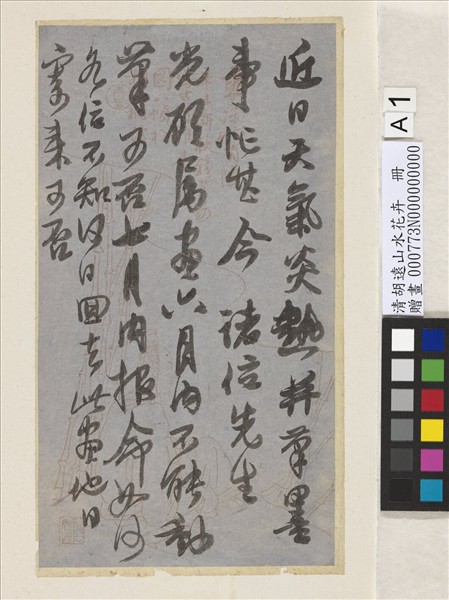 近日天氣炎熱并筆墨
事忙甚今諸位先生
光顧属畫六月內不能動
筆可否七月內报命如何
信不知何日回去此畫他日
寄来可否
A1
清胡遠山水花卉 冊
贈畫 000773N000000000